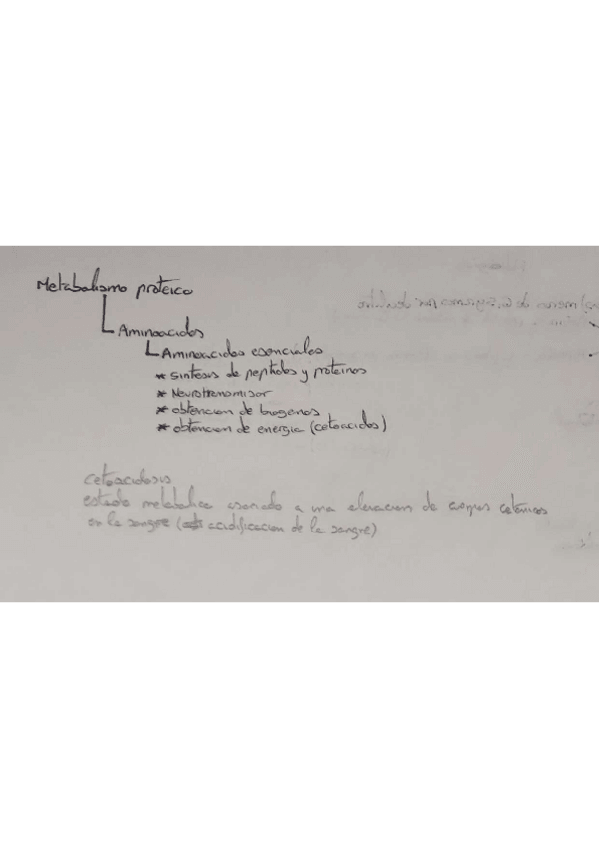 Metabolismo proteico
Aminoacidos
Aminoacidos esenciales
* sintesis de peptidos y proteinas
* Neurotransmisor
* obtencion de
* obtencion de energia (cetoacidos)
cetoacidosis
estado metabolico asociado a una elevacion de cuerpos cetonicos
en la sangre ( acidificacion de la sangre)